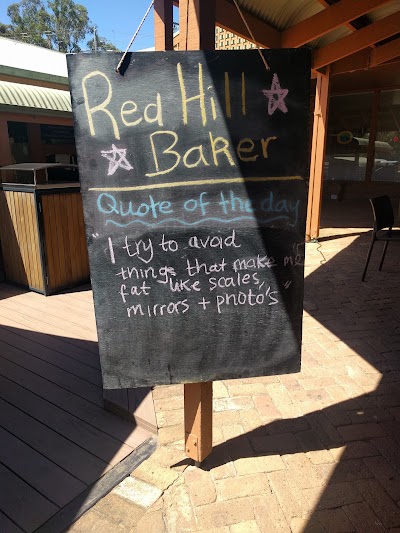 Red Hill
Baker
Quote of the day
"I try to avoid
things that make me
fat like scales,
mirrors + photo's"